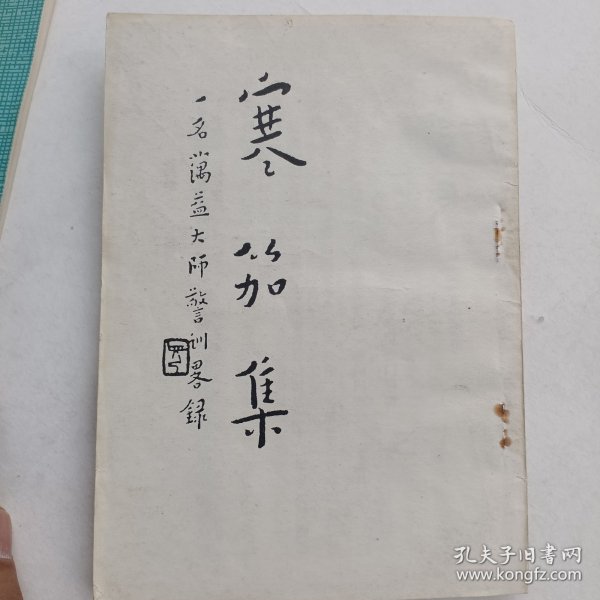 寒笳集
一名蕅益大师警训畧録
孔夫子旧书网
www.kongfz.com